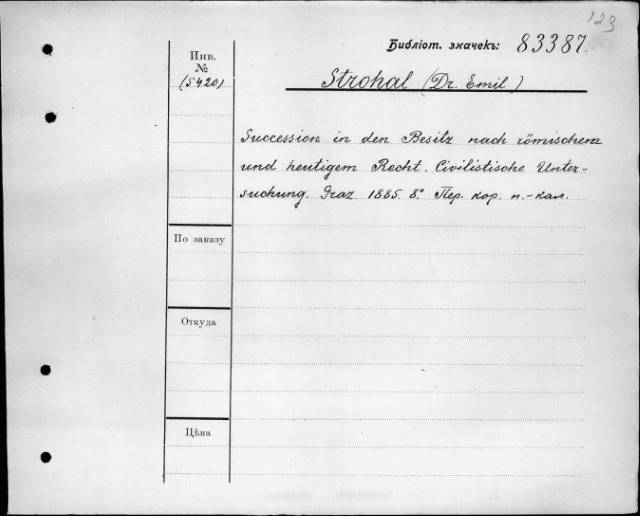 123
Библіот. значекъ: 83387.
Инв.
№
(5420)
Strohal (Dr. Emil)
Succession in den Besitz nach römischem
und heutigem Recht. Civilistische Unter-
suchung. Graz. 1885. 8º Пер. кор. п.-кал.
По заказу
Откуда
Цѣна